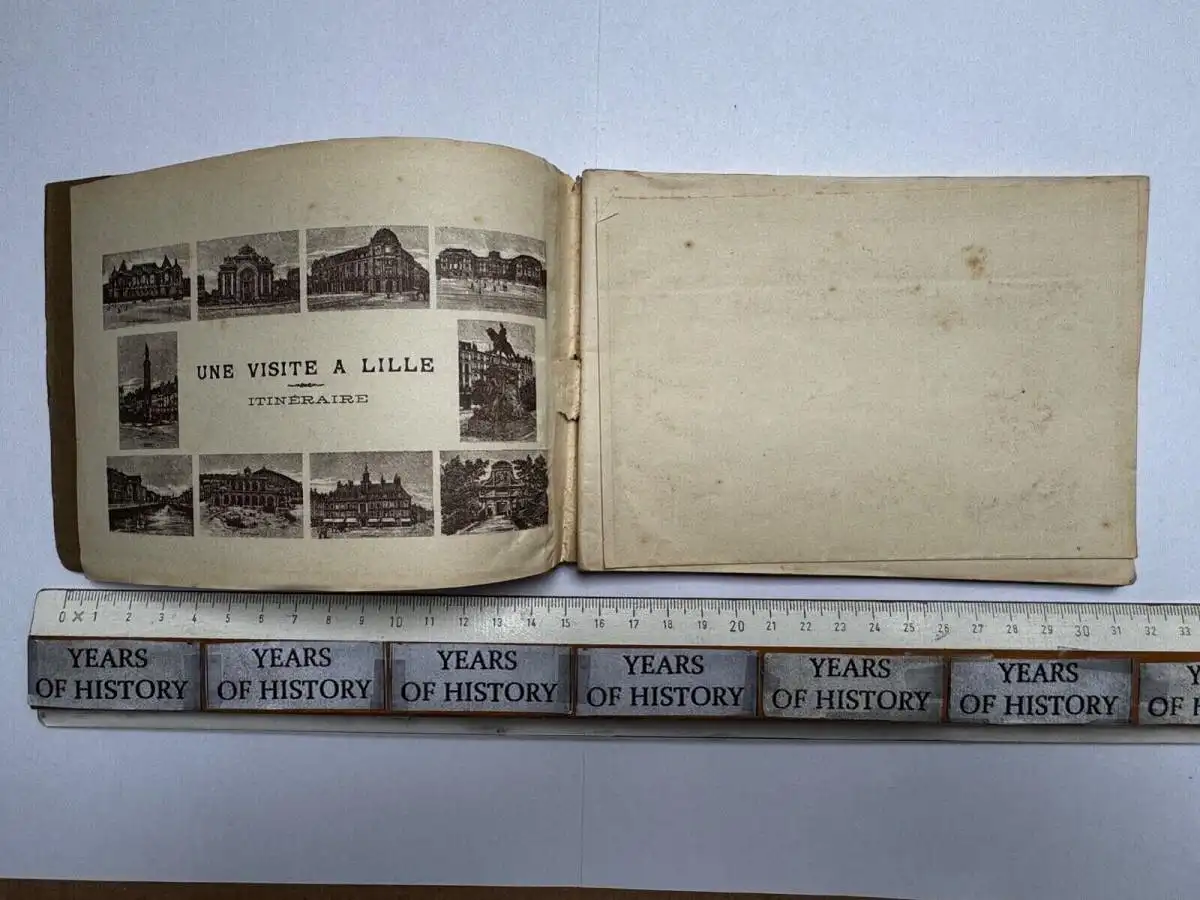 UNE VISITE A LILLE
ITINÉRAIRE
0 1 2 3 4 5 6 7 8 9 10 11 12 13 14 15 16 17 18 19 20 21 22 23 24 25 26 27 28 29 30 31 32 33
YEARS OF HISTORY
YEARS OF HISTORY
YEARS OF HISTORY
YEARS OF HISTORY
YEARS OF HISTORY
YEARS OF HISTORY
Y
OF H